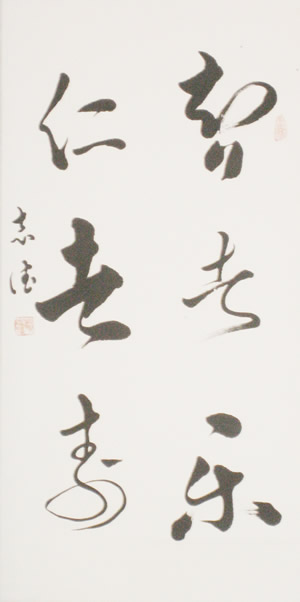 智者乐
仁者寿
志德